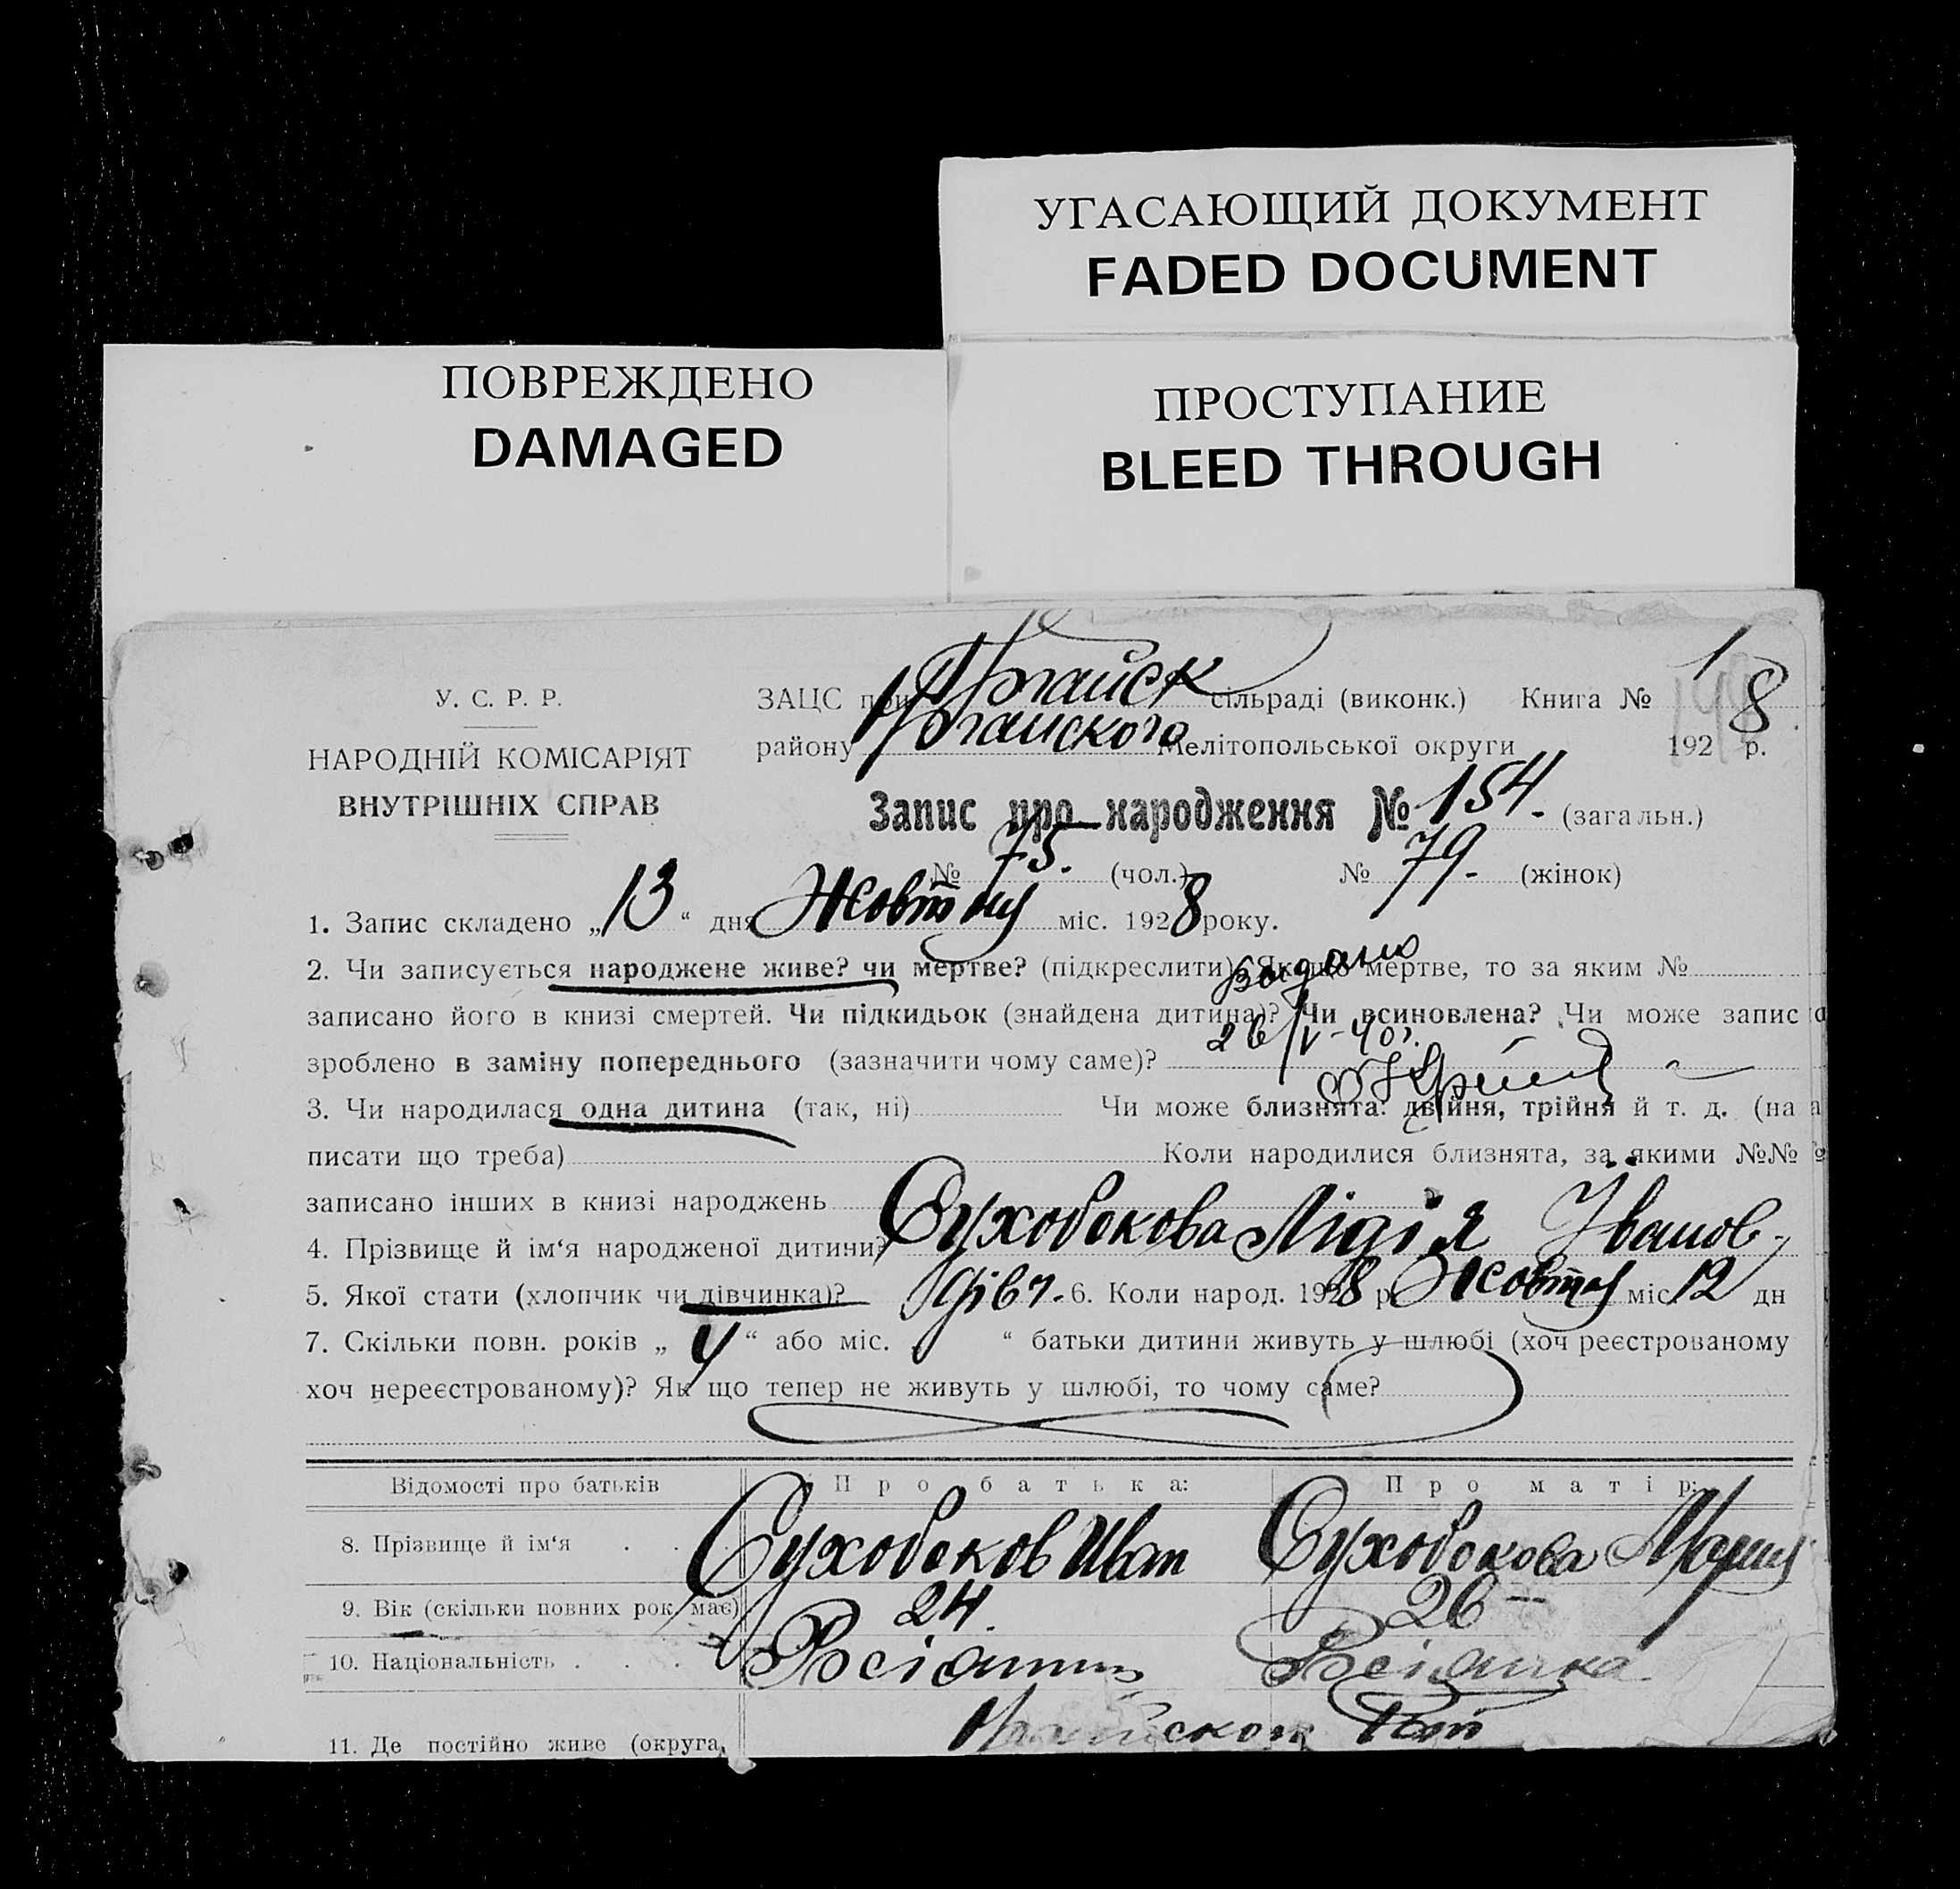 УГАСАЮЩИЙ ДОКУМЕНТ
FADED DOCUMENT
ПОВРЕЖДЕНО
DAMAGED
ПРОСТУПАНИЕ
BLEED THROUGH
У. С. Р. Р.
НАРОДНІЙ КОМІСАРІЯТ
ВНУТРІШНІХ СПРАВ
ЗАЦС при сільраді (виконк.) Книга № 1
району Мелітопольської округи 1928 р.
Запис про народження № 154. (загальн.)
№ 75. (чол.) № 79. (жінок)
1. Запис складено „13“ дня Жовтня міс. 1928 року.
2. Чи записується народжене живе? чи мертве? (підкреслити) Якщо мертве, то за яким №
записано його в книзі смертей. Чи підкидьок (знайдена дитина)? Чи всиновлена? Чи може запис
26/V-40г.
зроблено в заміну попереднього (зазначити чому саме)?
3. Чи народилася одна дитина (так, ні) Чи може близнята: двійня, трійня й т. д. (на
писати що треба) Коли народилися близнята, за якими №№
записано інших в книзі народжень
4. Прізвище й ім‘я народженої дитини? Сухобокова Лідія Іванов.
5. Якої стати (хлопчик чи дівчинка)? Дівч. 6. Коли народ. 1928 р. Жовтня міс. 12 дн
7. Скільки повн. років „ “ або міс. “ батьки дитини живуть у шлюбі (хоч реєстрованому
хоч нереєстрованому)? Як що тепер не живуть у шлюбі, то чому саме?
Відомості про батьків Про батька: Про матір:
8. Прізвище й ім‘я Сухобоков Иван Сухобокова Мария
9. Вік (скільки повних рок. має) 24. 26
10. Національність Росіянин Росіянка
11. Де постійно живе (округа,